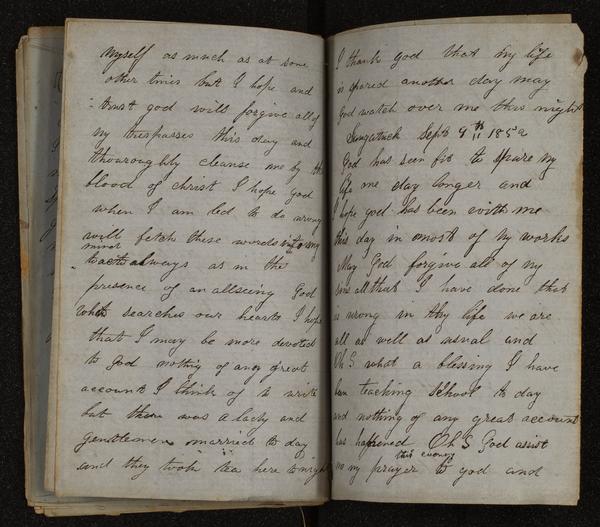 myself as much as at some
other times but I hope and
trust god will forgive all of
my trespasses this day and
thouroughly cleanse me by the
blood of christ I hope god
when I am led to do wrong
will fetch these words into my
mind
to act always as in the
presence of an allseeing God
who searches our hearts I hope
that I may be more devoted
to god nothing of any great
account I think of to write
but there was a lady and
gentlemen married to day
and they took tea here to night
I thank god that my life
is spared another day may
God watch over me this night
Saugatuck Sept 9th 1852
God has seen fit to spare my
life one day longer and
I hope god has been with me
this day in most of my works
May God forgive all of my
all that I have done that
is wrong in thy life we are
all as well as usual and
Oh S what a blessing I have
been teaching school to day
and nothing of any great account
has happened Oh S God asist
this evening
me my prayer to god and